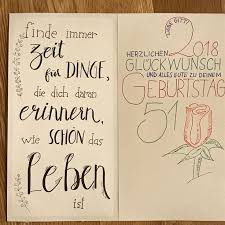 finde immer
Zeit
für DINGE,
die dich daran
erinnern,
wie SCHÖN das
Leben
ist!
2018
HERZLICHEN
GLÜCKWUNSCH
UND ALLES GUTE ZU DEINEM
GEBURTSTAG
51